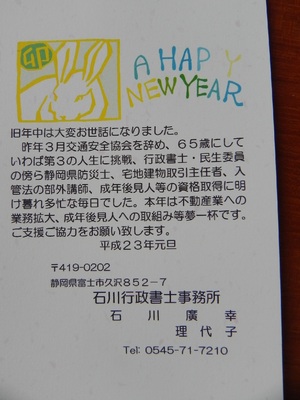 卯
A HAPPY
NEW YEAR
旧年中は大変お世話になりました。
昨年3月交通安全協会を辞め、65歳にして
いわば第3の人生に挑戦、行政書士・民生委員
の傍ら静岡県防災士、宅地建物取引主任者、入
管法の部外講師、成年後見人等の資格取得に明
け暮れ多忙な毎日でした。本年は不動産業への
業務拡大、成年後見人への取組み等夢一杯です。
ご支援ご協力をお願い致します。
平成23年元旦
〒419-0202
静岡県富士市久沢852-7
石川行政書士事務所
石川廣幸
理代子
Tel: 0545-71-7210